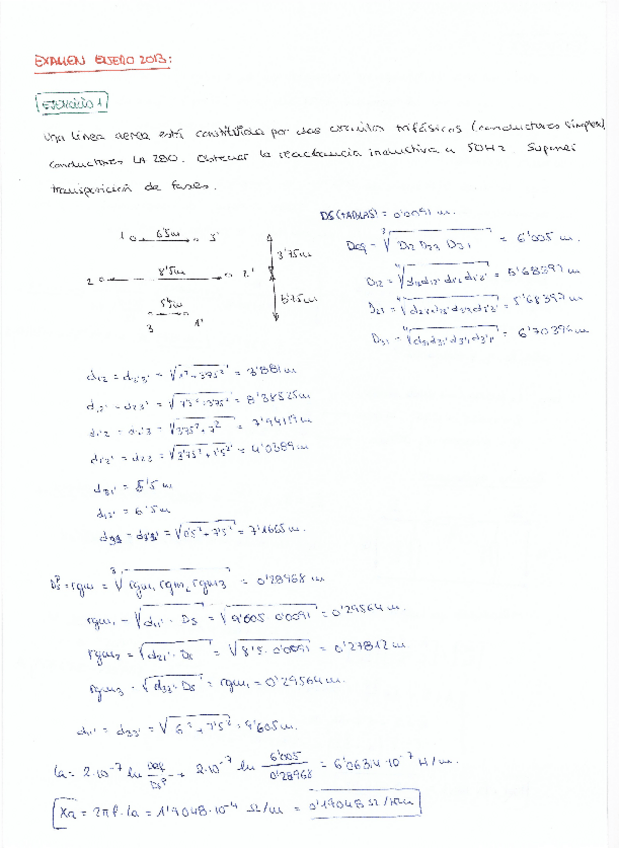 EXAMEN ENERO 2013:
EJERCICIO 1
Una línea aerea está constituida por dos circuitos trifásicos (conductores simplex)
conductores LA 280. Obtener la reactancia inductiva a 50Hz. Suponer
transposición de fases.
DS (TABLAS) = 0'0091 m.
Deq = ∛(D12 D23 D31) = 6'005 m.
D12 = ⁴√(d12 d12' d1'2 d1'2') = 5'68397 m
= 5'68397 m
= 6'70394 m
1 6'5m 3'
2 8'5m 2'
5'5m
3 1'
3'75m
3'75m
d12 = d2'3' = √(1²+3'75²) = 3'881 m
d12' = d23' = √(7'5²+3'75²) = 8'38525 m
d1'2 = d2'3 = √(3'75²+7²) = 7'9415 m
d1'2' = d23 = √(3'75²+1'5²) = 4'0389 m
d31' = 5'5 m
d13' = 6'5 m
= √(0'5²+7'5²) = 7'1665 m.
DsP = rgm = ∛(rgm1 rgm2 rgm3) = 0'28968 m
rgm1 = √(d11' · Ds) = √(9'605 · 0'0091) = 0'29564 m.
rgm2 = √(d22' · Ds) = √(8'5 · 0'0091) = 0'27812 m.
rgm3 = √(d33' · Ds) = rgm1 = 0'29564 m.
d11' = d33' = √(6²+7'5²) = 9'605 m.
La = 2·10⁻⁷ ln Deq/DsP → 2·10⁻⁷ ln 6'005/0'28968 = 6'0634·10⁻⁷ H/m.
Xa = 2πf·La = 1'9048·10⁻⁴ Ω/m = 0'19048 Ω/Km